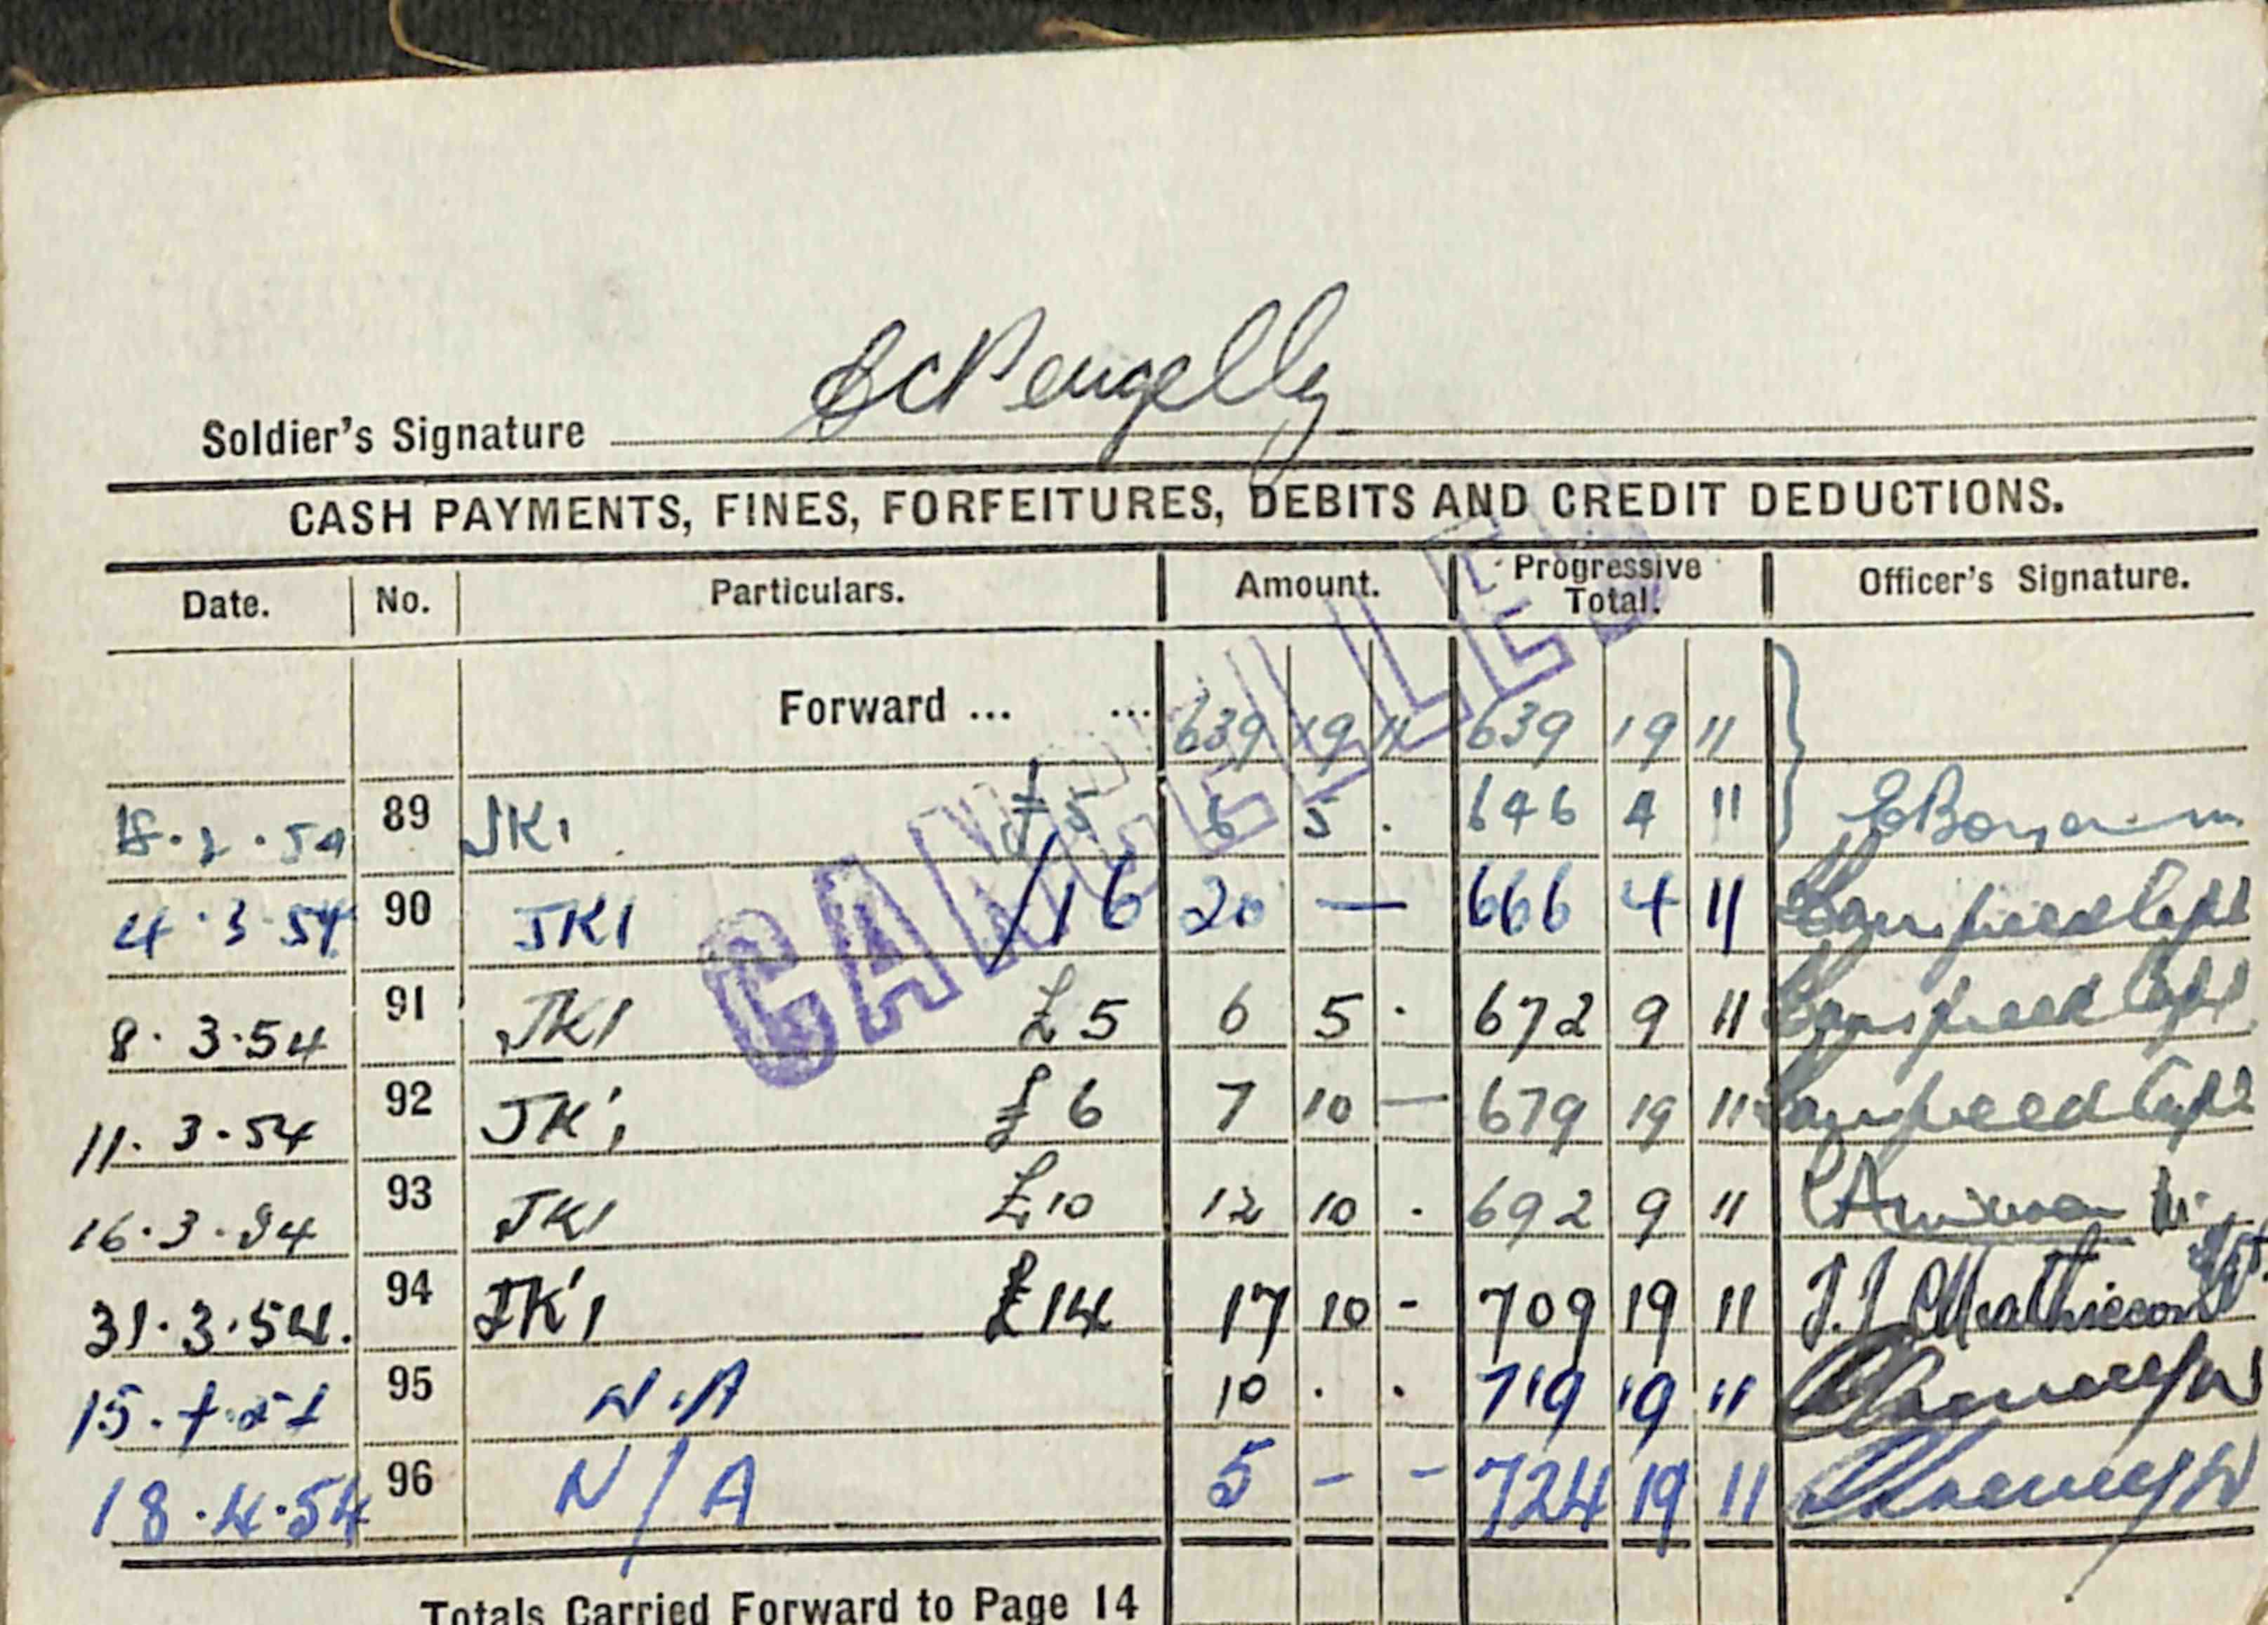 Pengelly
Soldier's Signature
CASH PAYMENTS, FINES, FORFEITURES, DEBITS AND CREDIT DEDUCTIONS.
Date. No. Particulars. Amount. Progressive Total. Officer's Signature.
Forward ... ... 639 19 11 639 19 11
CANCELLED
89 JK1 £5 6 5 . 646 4 11
4.3.54 90 JK1 £16 20 — 666 4 11 Capt
8.3.54 91 JK1 £5 6 5 . 672 9 11 Capt
11.3.54 92 JK1 £6 7 10 — 679 19 11 Capt
16.3.54 93 JK1 £10 12 10 . 692 9 11
31.3.54. 94 JK1 £14 17 10 - 709 19 11 J.J. Mathieson
15.4.54 95 N.A 10 . . 719 19 11
18.4.54 96 N/A 5 - - 724 19 11
Totals Carried Forward to Page 14